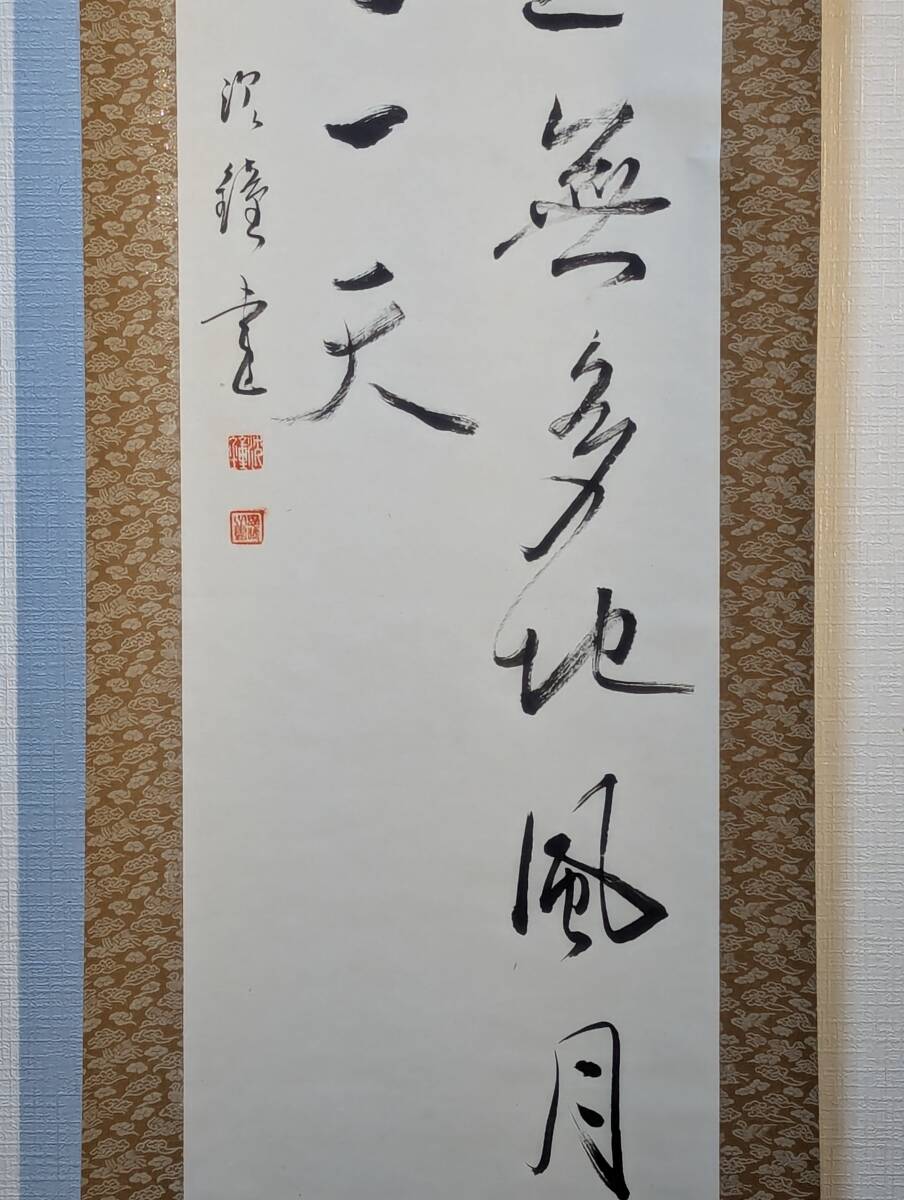 無多地風月
一天
沈鐘書